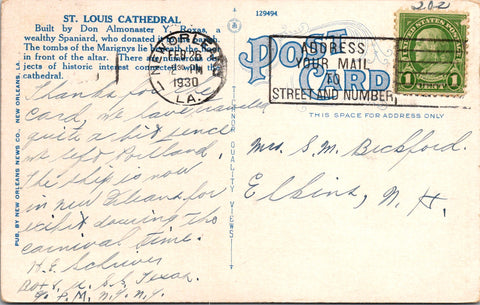 ST. LOUIS CATHEDRAL
Built by Don Almonaster Y. Roxas, a
wealthy Spaniard, who donated it to the parish.
The tombs of the Marignys lie beneath the floor
in front of the altar. There are numerous
jects of historic interest connected with the
cathedral.
129494
202
NEW ORLEANS
FEB 26
1930
LA.
ADDRESS
YOUR MAIL
TO
STREET AND NUMBER
POST CARD
UNITED STATES POSTAGE
1 1
THIS SPACE FOR ADDRESS ONLY
PUB. BY NEW ORLEANS NEWS CO., NEW ORLEANS, LA.
QUALITY VIEWS
Thanks for
card, we have traveled
quite a bit since
we left Portland.
The ship is now
in New Orleans for
visit dowring the
carnival time.
H. E. Schriver
Box U.S.S. Texas.
% P.M. N.Y. N.Y.
Mrs. S. M. Bickford.
Elkins, N. H.